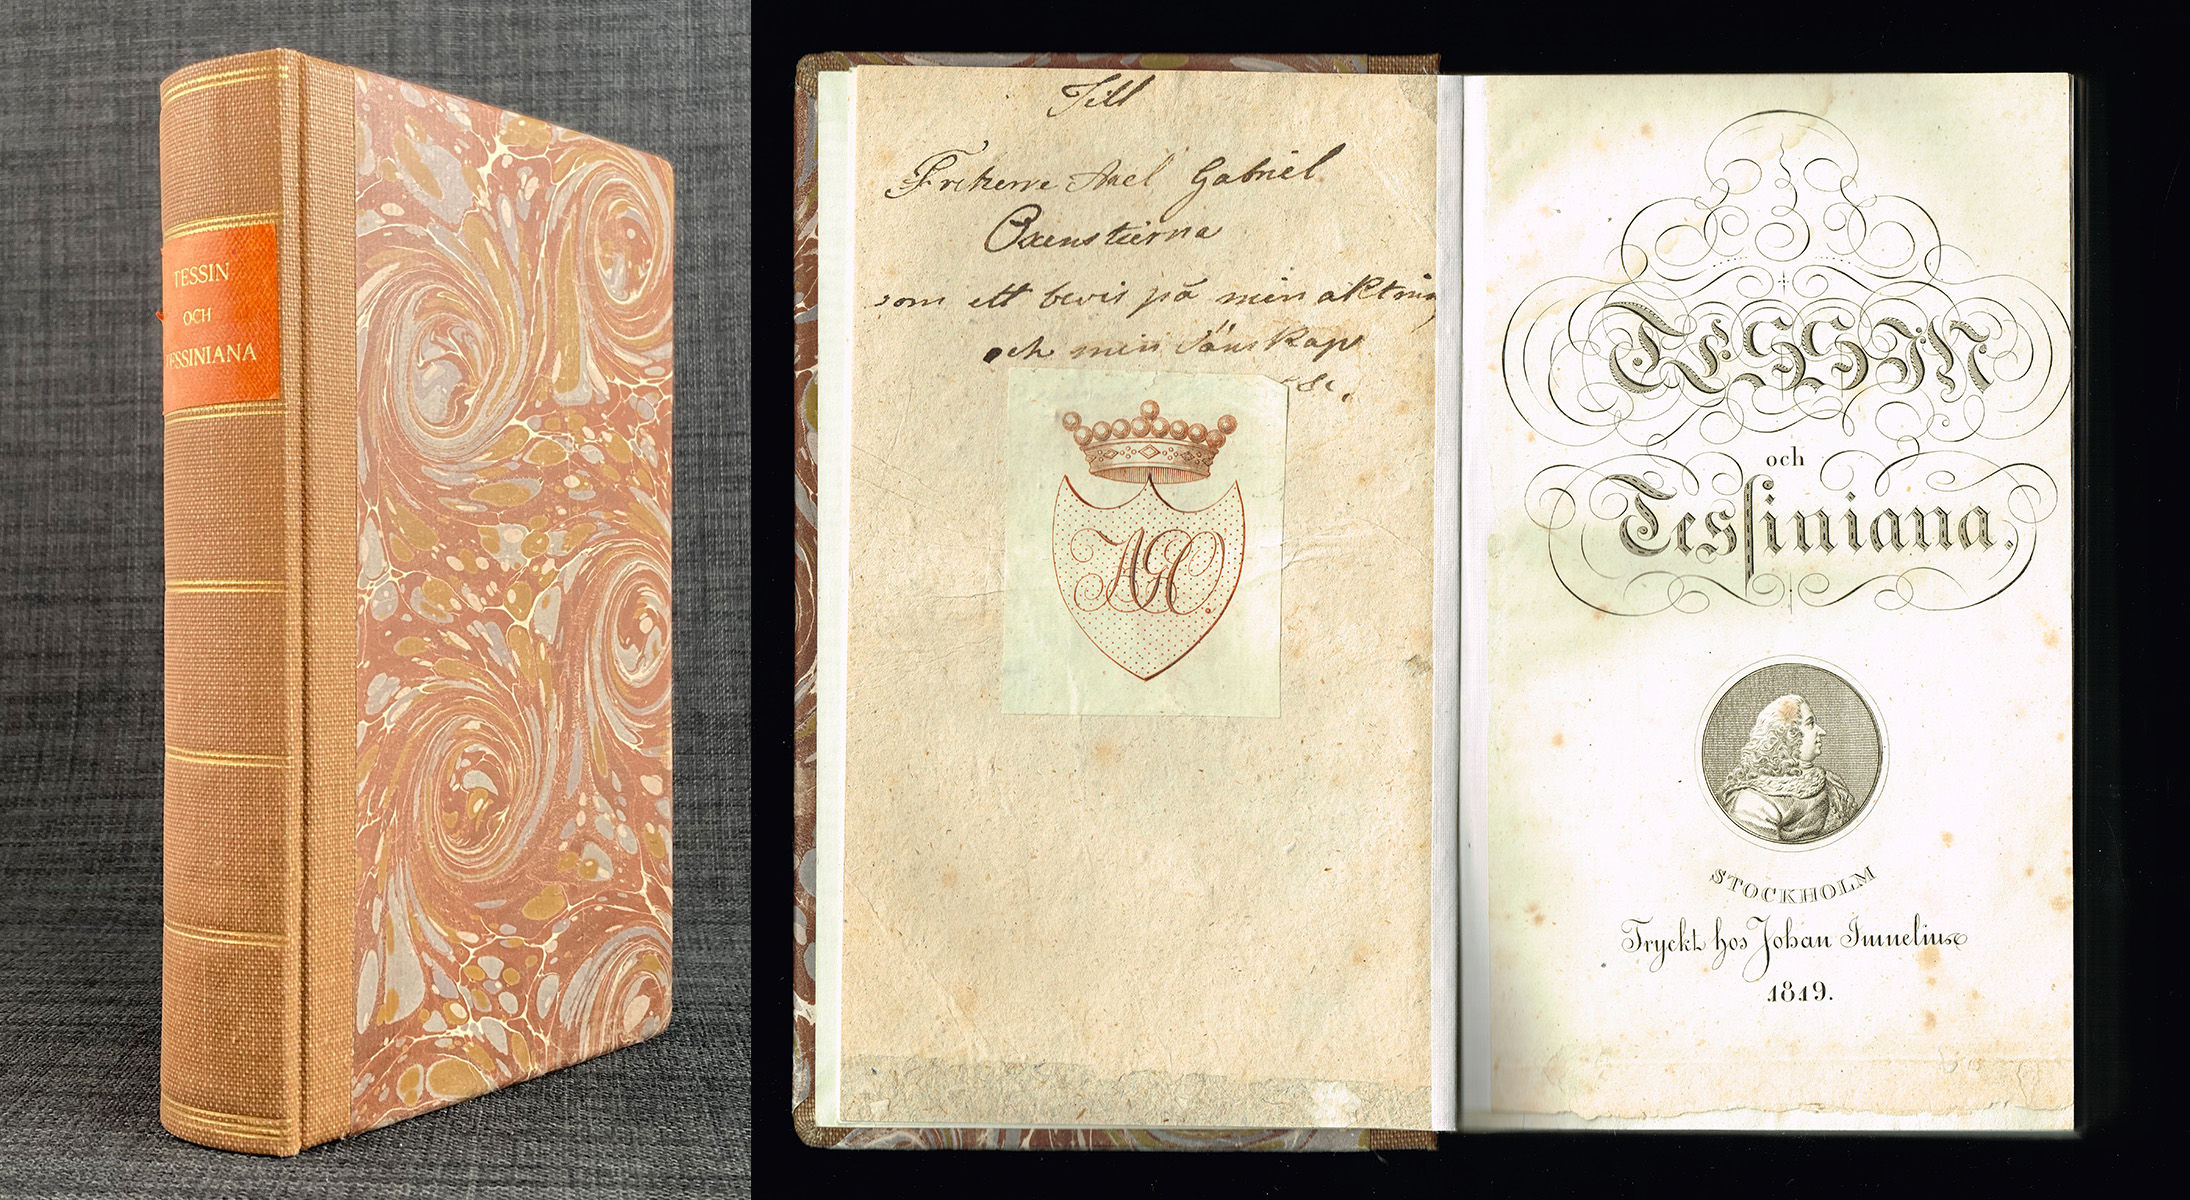 TESSIN
OCH
TESSINIANA
Till
Friherre Axel Gabriel
Oxenstierna
som ett bevis på min aktning
och min vänskap
AGO.
TESSIN
och
Tessiniana.
STOCKHOLM
Tryckt hos Johan Imnelius
1819.